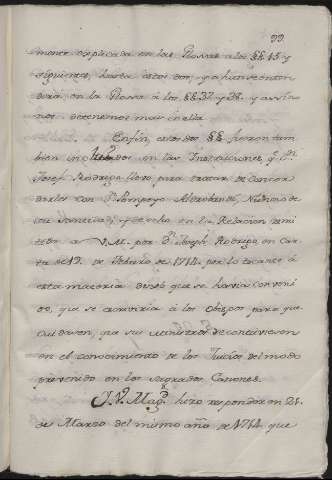 99
mente explicada en las Glossas a los §§. 15 y
siguientes, hasta estos dos, y aun se enten
derá en la Glossa à los §§. 37 y 38. y assi no
nos detenemos mas en ella
Enfin, estos dos §§. fueron tam
bien incluidos en las Instrucciones, q.e Dn.
Joseph Rodrigo llevó para tratar de Concor
darlos con Dn. Pompeyo Aldrobandi, Nuncio de
su Santidad, y de hecho en la Relacion remi
tida a V.M. por Dn. Joseph Rodrigo, en Car
ta de 12. de Febrero de 1714. por lo tocante à
esta materia dixo que se havia conveni
do, que se escriviria à los Obispos para que
cuidassen, que sus Ministros se contuviessen
en el conocimiento de los Juicios del modo
prevenido en los sagrados Canones.
S. Mag.d hizo responder en 21.
de Marzo del mismo año de 1714 que